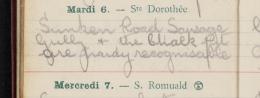 Mardi 6. — Ste Dorothée
Sunken Road Sausage
Gully & the Chalk Pit
are hardly recognisable
Mercredi 7. — S. Romuald